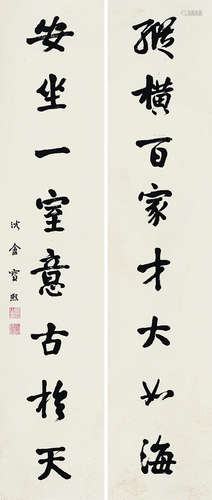 縱橫百家才大如海
安坐一室意古於天
沈盦寶熙